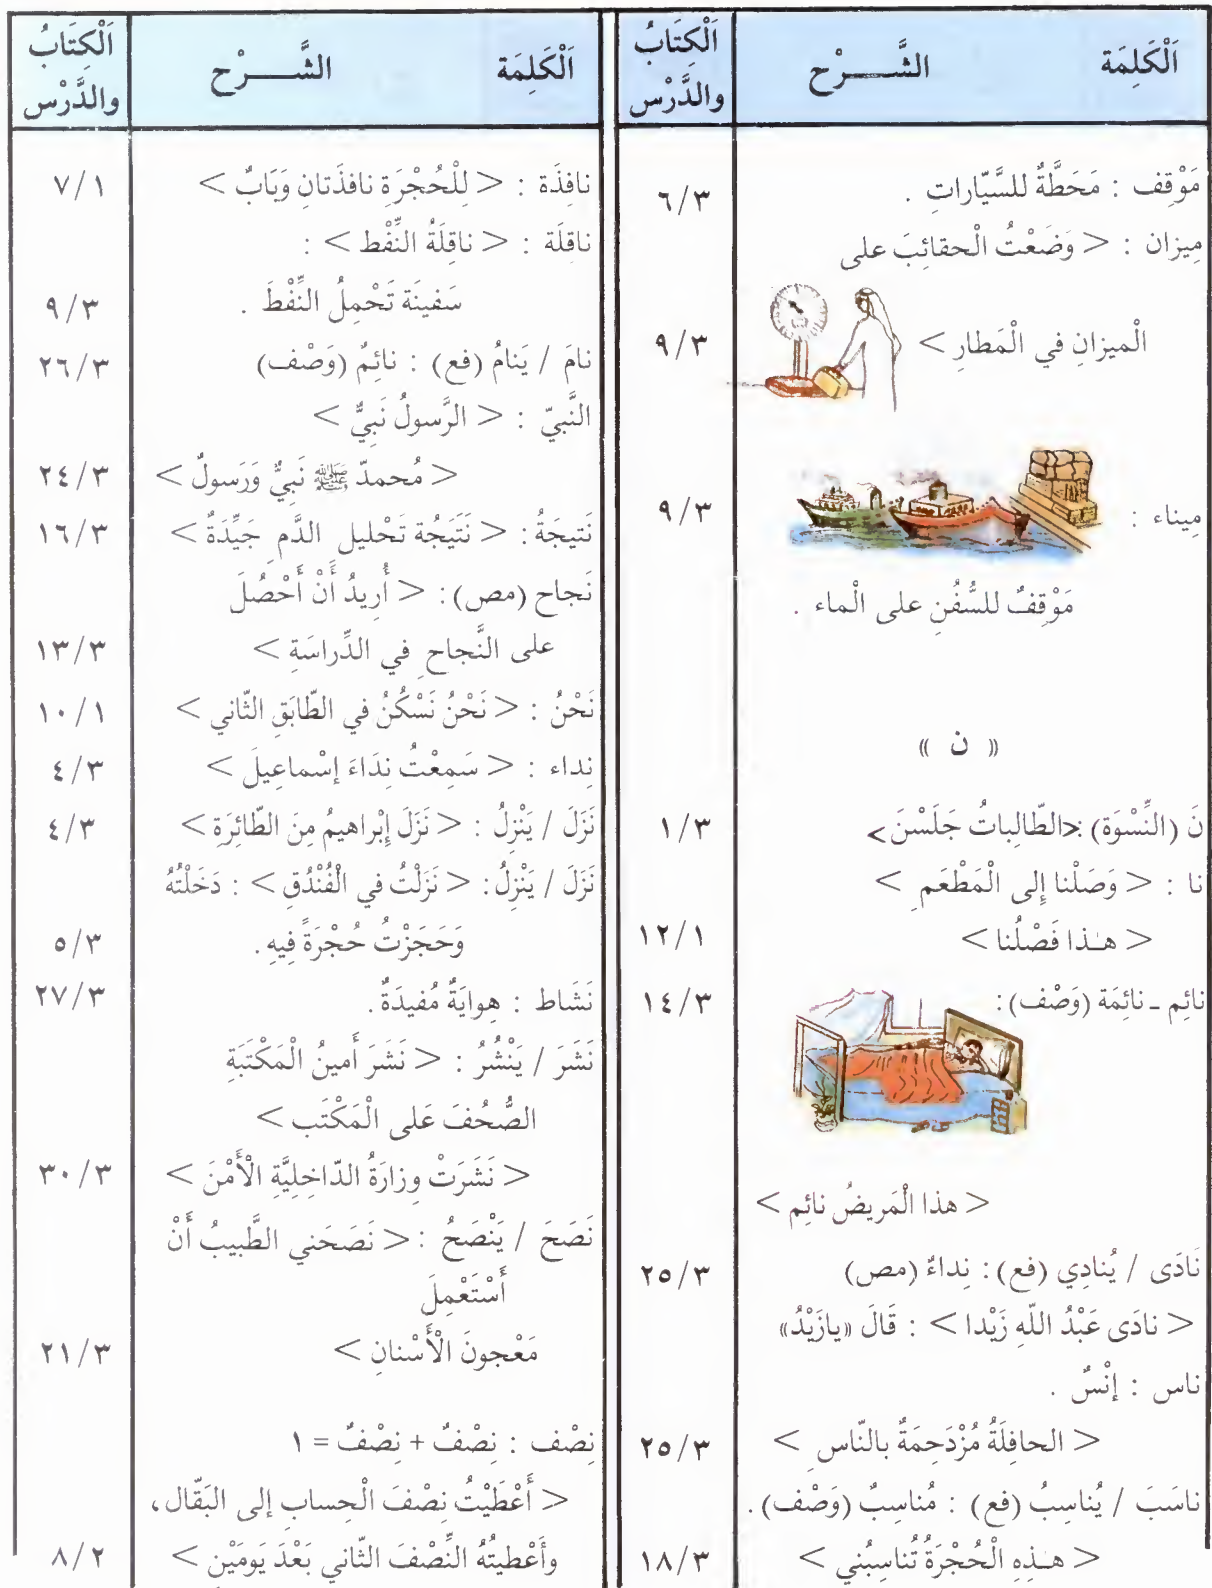 اَلْكَلِمَة الشَّـــرْح اَلْكِتَابُ والدَّرْس
مَوْقِف : مَحَطَّةٌ للسَّيّاراتِ . ٦/٣
مِيزان : < وَضَعْتُ الْحقائِبَ على
الْميزانِ في الْمَطارِ > ٩/٣
مِيناء : ٩/٣
مَوْقِفٌ للسُّفُنِ على الْماء .
« ن »
نَ (النِّسْوَة) : <الطّالِباتُ جَلَسْنَ> ١/٣
نا : < وَصَلْنا إِلى الْمَطْعَمِ >
< هـٰذا فَصْلُنا > ١٢/١
نائِم ـ نائِمَة (وَصْف) : ١٤/٣
< هذا الْمَريضُ نائِم >
نَادَى / يُنادِي (فع) : نِداءٌ (مص) ٢٥/٣
< نادَى عَبْدُ اللّه زَيْدا > : قَالَ «يازَيْدُ»
ناس : إنْسٌ .
< الحافِلَةُ مُزْدَحِمَةٌ بالنّاسِ > ٢٥/٣
ناسَبَ / يُناسِبُ (فع) : مُناسِبٌ (وَصْف) .
< هـٰذِهِ الْحُجْرَةُ تُناسِبُني > ١٨/٣
اَلْكَلِمَة الشَّـــرْح اَلْكِتَابُ والدَّرْس
نافِذَة : < لِلْحُجْرَةِ نافذَتانِ وَبَابٌ > ٧/١
ناقِلَة : < ناقِلَةُ النِّفْط > :
سَفينَة تَحْمِلُ النِّفْطَ . ٩/٣
نامَ / يَنامُ (فع) : نائِمٌ (وَصْف) ٢٦/٣
النَّبيّ : < الرَّسولُ نَبيٌّ >
< مُحمدّ ﷺ نَبيٌّ وَرَسولٌ > ٢٤/٣
نَتيجَةُ : < نَتَيَجُة تَحْليل الدَّمِ جَيِّدَةٌ > ١٦/٣
نَجاح (مص) : < أُريدُ أَنْ أَحْصُلَ
على النَّجاحِ في الدِّراسَةِ > ١٣/٣
نَحْنُ : < نَحْنُ نَسْكُنُ في الطّابَقِ الثّاني > ١٠/١
نِداء : < سَمِعْتُ نِدَاءَ إسْماعِيلَ > ٤/٣
نَزَلَ / يَنْزِلُ : < نَزَلَ إِبْراهيمُ مِنَ الطّائِرَةِ > ٤/٣
نَزَلَ / يَنْزِلُ : < نَزَلْتُ في الْفُنْدُقِ > : دَخَلْتُهُ
وَحَجَزْتُ حُجْرَةً فِيهِ . ٥/٣
نَشَاط : هِوايَةٌ مُفيدَةٌ . ٢٧/٣
نَشَرَ / يَنْشُرُ : < نَشَرَ أَمينُ الْمَكْتَبَةِ
الصُّحُفَ عَلى الْمَكْتَب >
< نَشَرَتْ وِزارَةُ الدّاخِلِيَّةِ الْأَمْنَ > ٣٠/٣
نَصَحَ / يَنْصَحُ : < نَصَحَني الطَّبيبُ أَنْ
أَسْتَعْمِلَ
مَعْجونَ الْأَسْنانِ > ٢١/٣
نِصْف : نِصْفٌ + نِصْفٌ = ١
< أَعْطَيْتُ نِصْفَ الْحِسابِ إلى البَقّال ،
وأَعْطيتُهُ النِّصْفَ الثّاني بَعْدَ يَومَيْنِ > ٨/٢